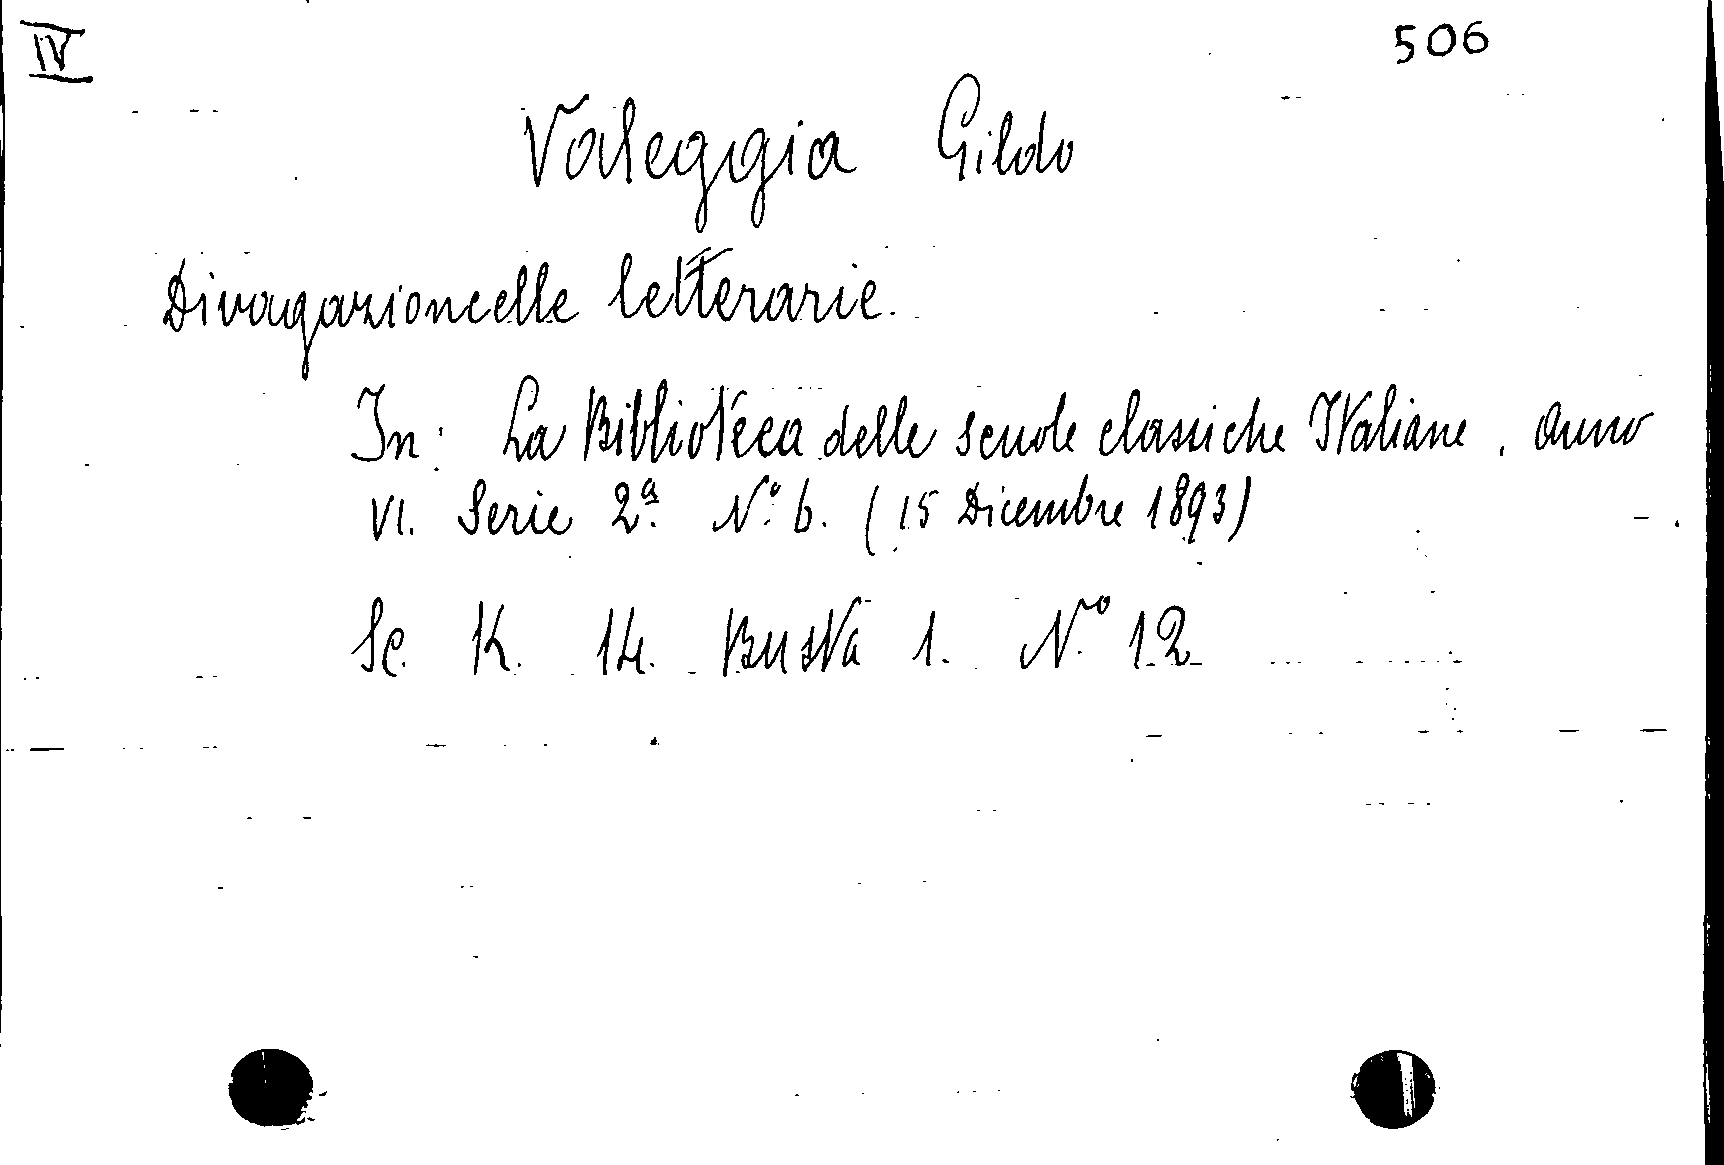 IV 506
Valeggia Gildo
Divagazioncelle letterarie.
In: La Biblioteca delle scuole classiche Italiane. Anno
VI. Serie 2ª. Nº. 6. (15 Dicembre 1893)
Sc. K. 14. Busta 1. Nº 12